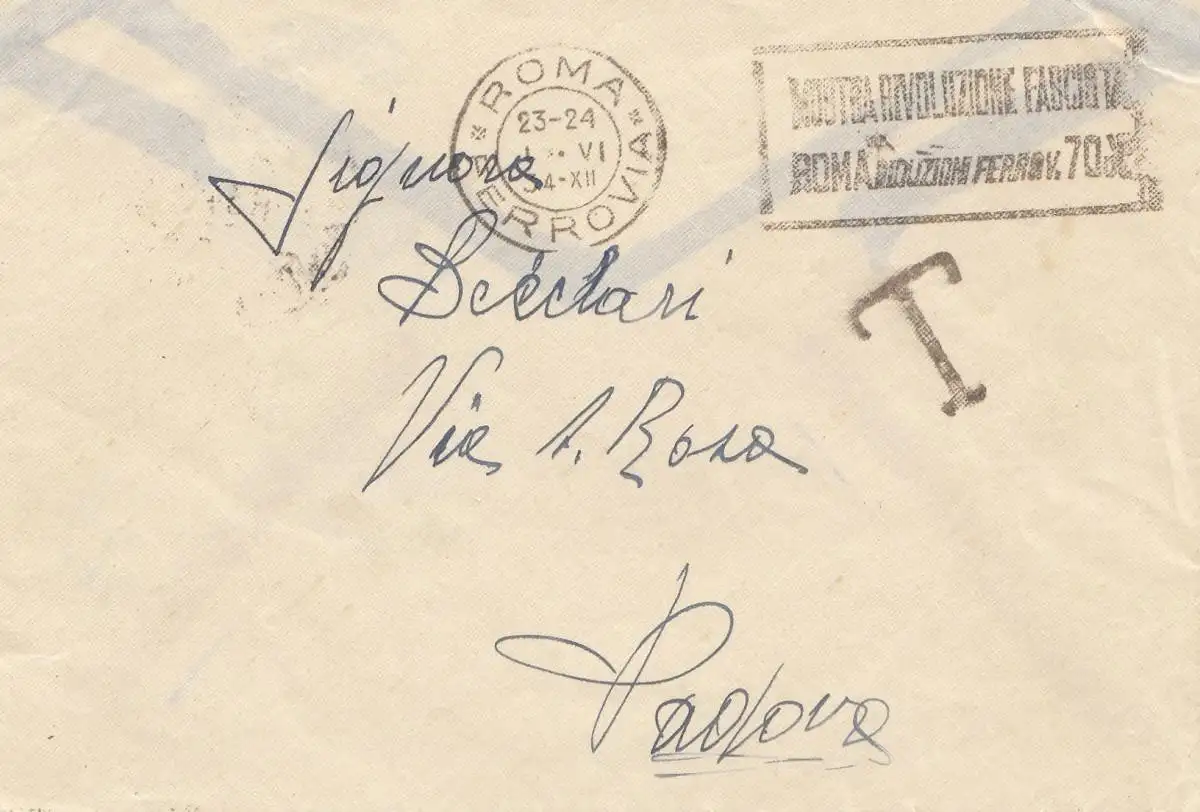 ROMA FERROVIA
23-24
VI
34-XII
MOSTRA RIVOLUZIONE FASCISTA
ROMA RIDUZIONI FERROV. 70%
T
Signora
Via S. Rosa
Padova